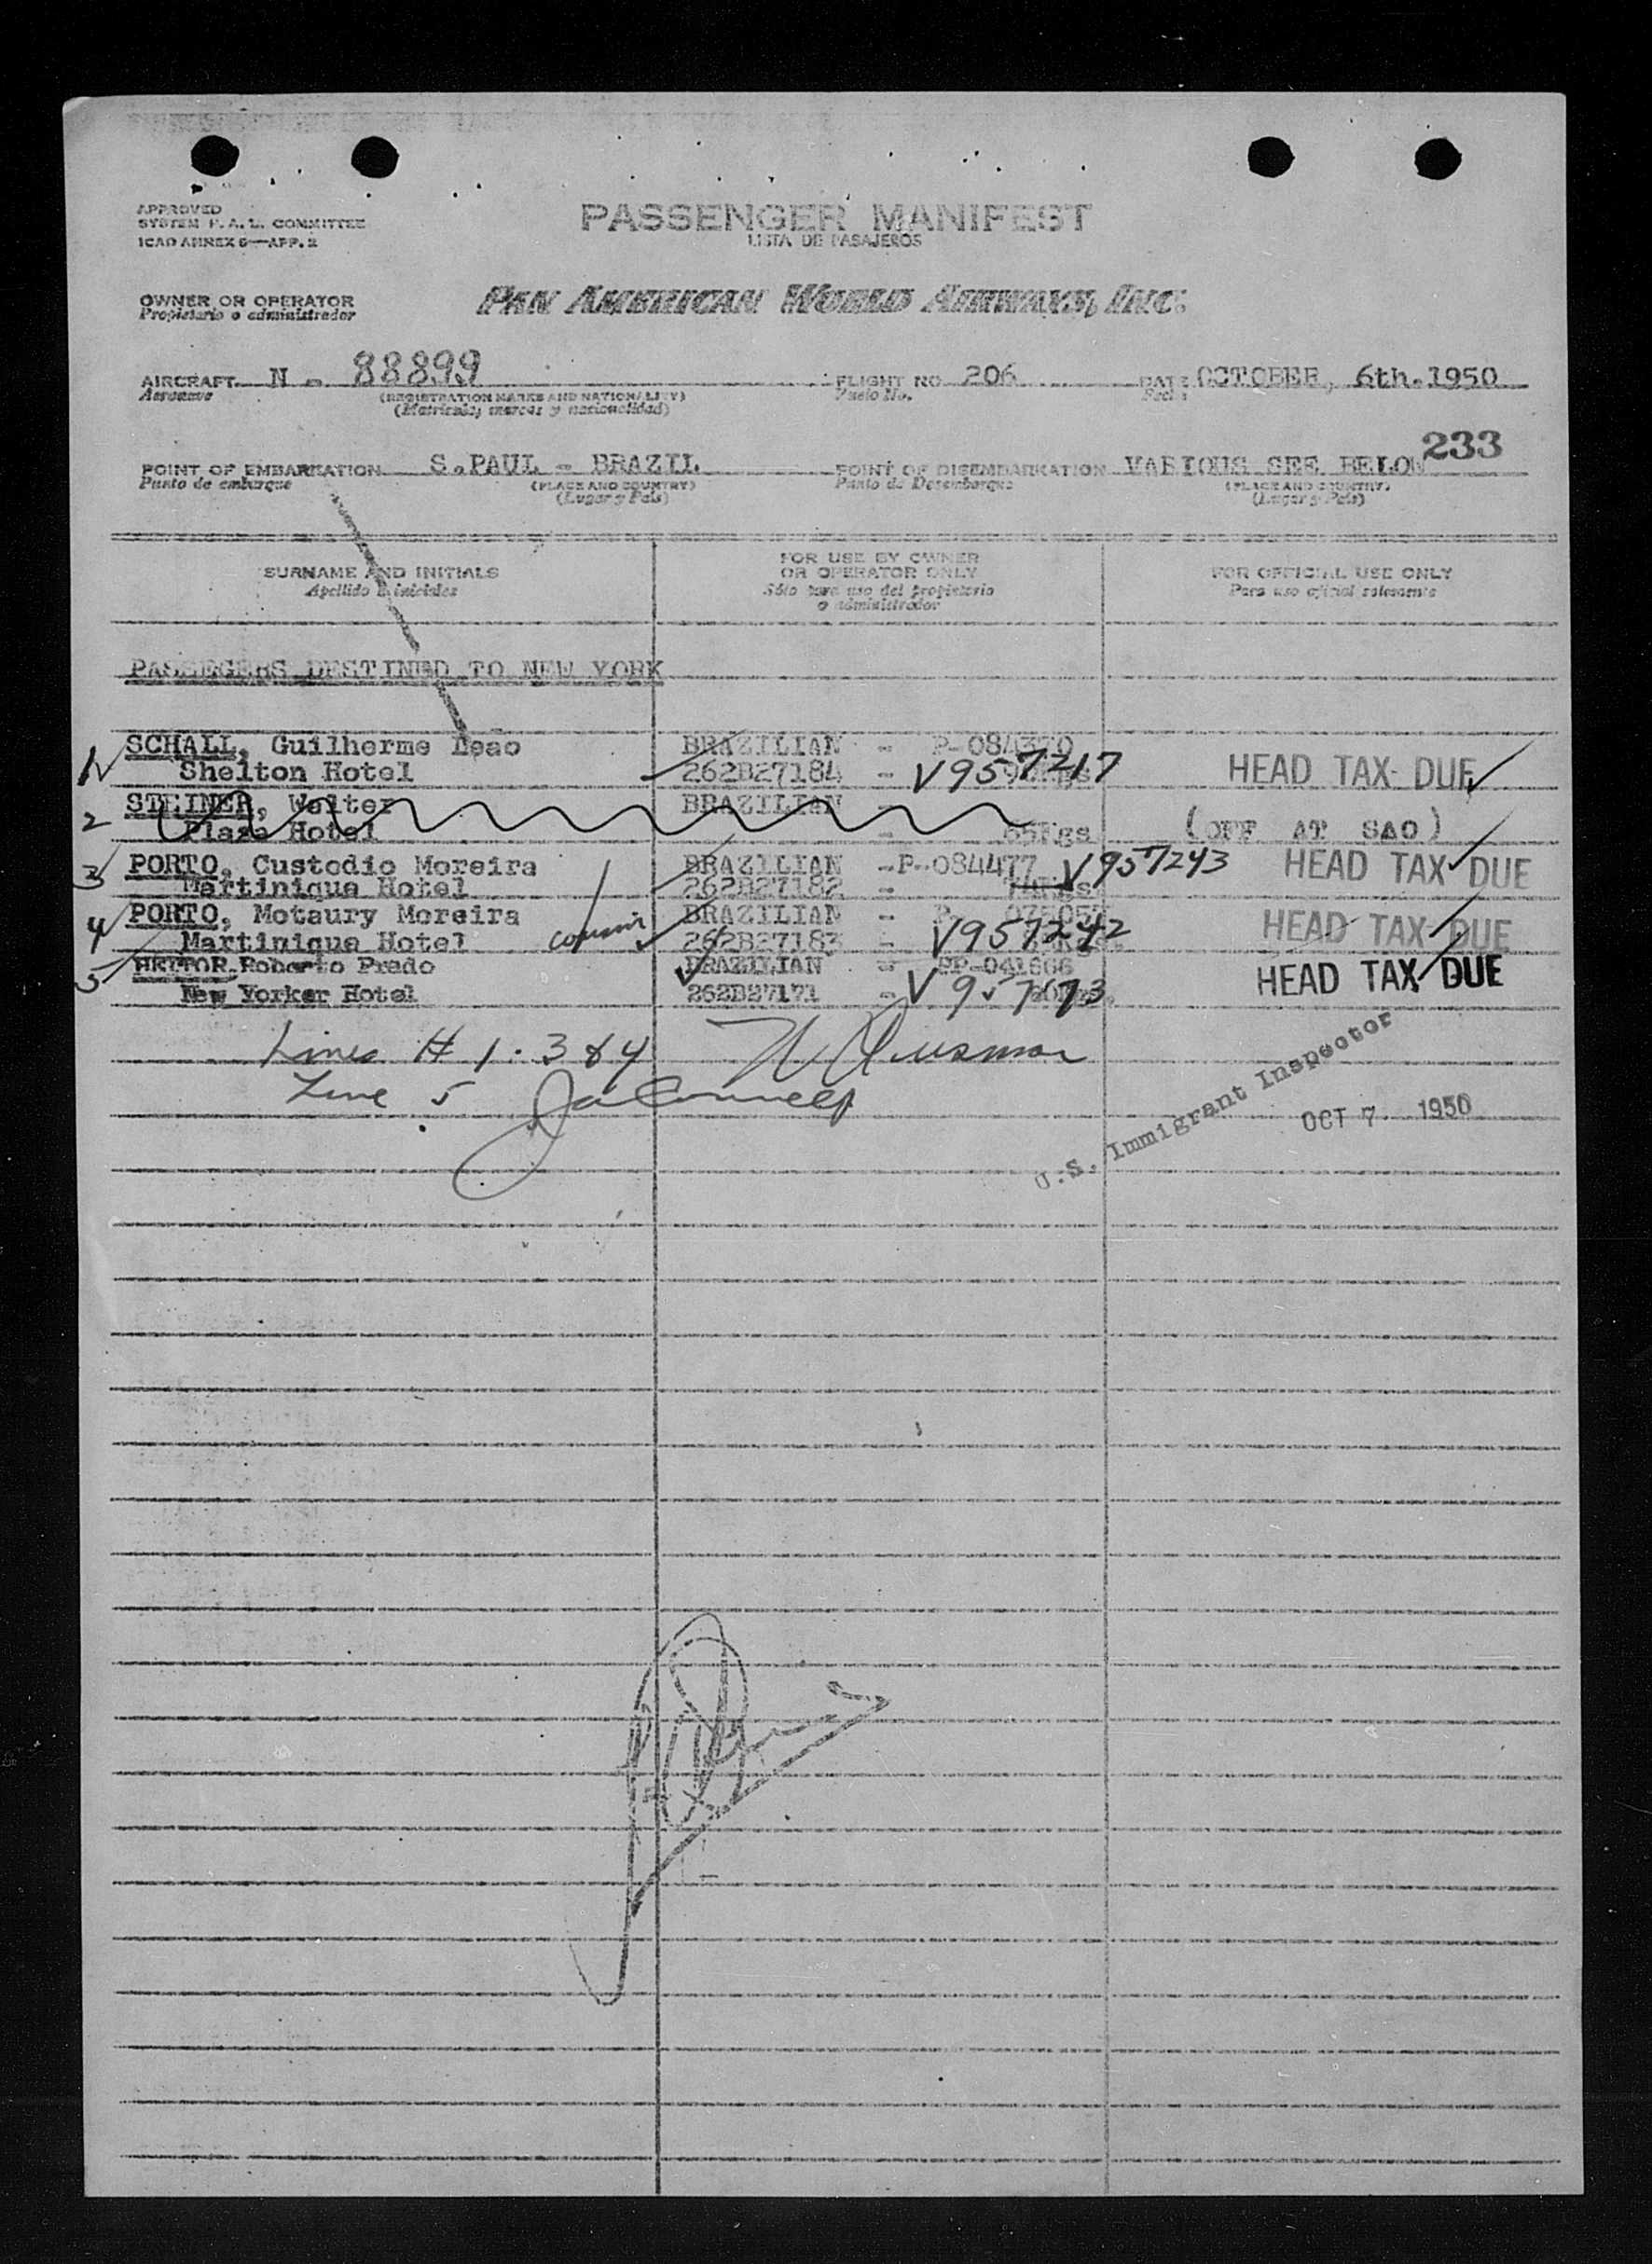 APPROVED
SYSTEM F.A.L. COMMITTEE
ICAO ANNEX 9—APP. 2
PASSENGER MANIFEST
LISTA DE PASAJEROS
OWNER OR OPERATOR
Propietario o administrador
PAN AMERICAN WORLD AIRWAYS, INC.
AIRCRAFT N - 88899 FLIGHT NO. 206 DATE OCTOBER, 6th.1950
Aeronave (REGISTRATION MARKS AND NATIONALITY) Vuelo No. Fecha
(Matricula, marcas y nacionalidad)
233
POINT OF EMBARKATION S.PAUL - BRAZIL POINT OF DISEMBARKATION VARIOUS SEE BELOW
Punto de embarque (PLACE AND COUNTRY) Punto de Desembarque (PLACE AND COUNTRY)
(Lugar y Pais) (Lugar y Pais)
SURNAME AND INITIALS FOR USE BY OWNER OR OPERATOR ONLY FOR OFFICIAL USE ONLY
Apellido e iniciales Sólo para uso del propietario o administrador Para uso oficial solamente
PASSEGERS DESTINED TO NEW YORK
1 SCHALL, Guilherme Leao BRAZILIAN - P-084370
Shelton Hotel 262B27184 - V957217 HEAD TAX DUE
2 STEINER, Walter BRAZILIAN -
Plaza Hotel - 65Kgs (OFF AT SAO)
3 PORTO, Custodio Moreira BRAZILIAN -P-084477 V957243 HEAD TAX DUE
Martinique Hotel 262B27182 -
4 PORTO, Motaury Moreira BRAZILIAN - P-
Martinique Hotel cousin 262B27183 - V957242 HEAD TAX DUE
5 Roberto Prado BRAZILIAN - PP-041666
New Yorker Hotel 262B27171 - V957173 HEAD TAX DUE
Lines # 1. 3 & 4
Line 5
U.S. Immigrant Inspector
OCT 7 1950